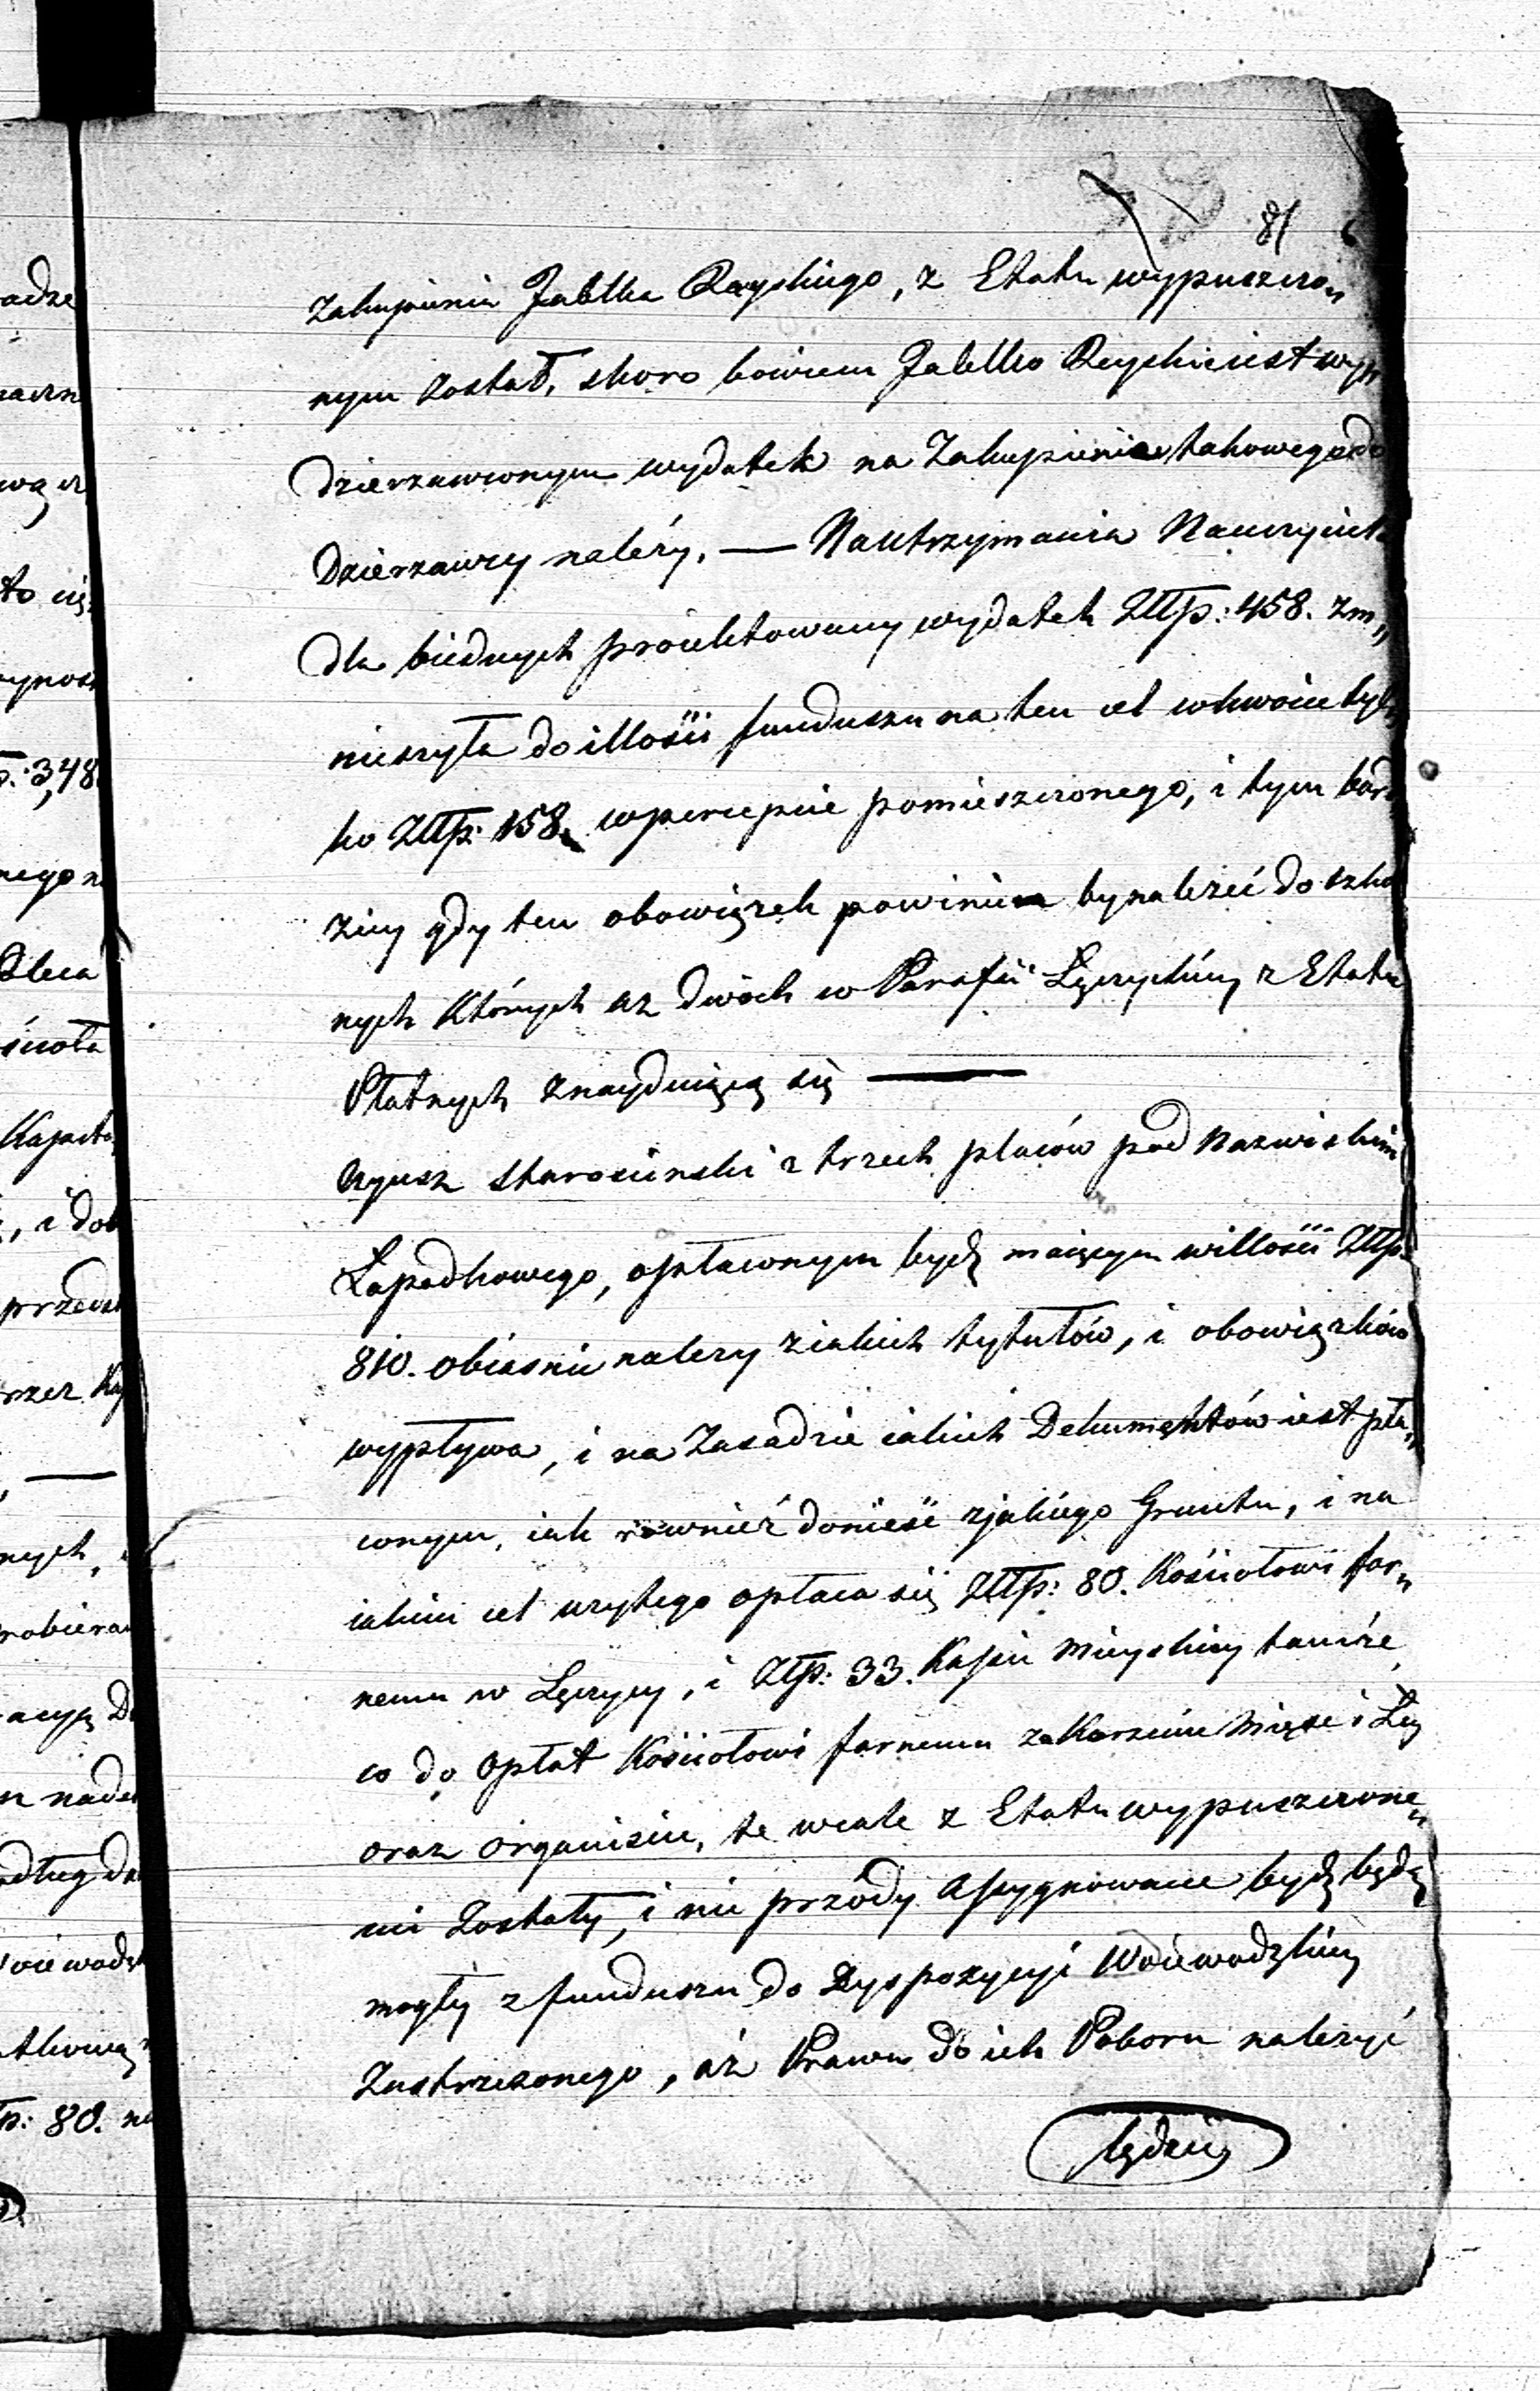 81
Zakupienia Jabłka Rayskiego, z Etatu wypuszczo„
nym został, skoro bowiem Jabłko Rayskie iest wy„
dzierzawionym wydatek na Zakupienie takowego do
Dzierzawcy należy. — Na utrzymania Nauczyciela
dla biednych proiektowany wydatek Złłp: 458. zm„
nieszyła do illości funduszu na ten cel w kwocie tyl„
ko Złłp: 158. w percepcie pomieszczonego, i tym bard
ziey gdy ten obowiązek powinien by należeć do szkol
nych których az dwóch w Parafii Łęczyckiey z Etatu
Płatnych znayduiącą się —
Czynsz Starościnski z trzech placów pod Nazwiskiem
Łapadkowego, opłacanym bydź maiącym w illości Złłp:
810. obiasnić nalezy z iakich tytułów, i obowiązków
wypływa, i na Zasadzie iakich Dokumentów iest pła„
conym, iak rownież donieść z jakiego Gruntu, i na
iakim cel uzytego opłaca się Złłp: 80. Kościołowi far„
nemu w Łęczycy, i Złp: 33. Kassie Mieyskiey tamże
co do Opłat Kościołowi farnemu za Korzenie Mięse i Łóy
oraz organiście, te wcale z Etatu wypuszczone„
mi Zostały, i nie przódy Assygnowane bydź będą
mogły z funduszu do Dyspozycyi Woiewodzkiey
Zastrzezonego, aż Prawa do ich Poboru należyć
będzie